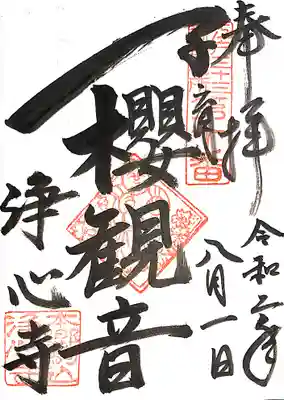 奉拝
令和二年
八月一日
子育
櫻観音
浄心寺